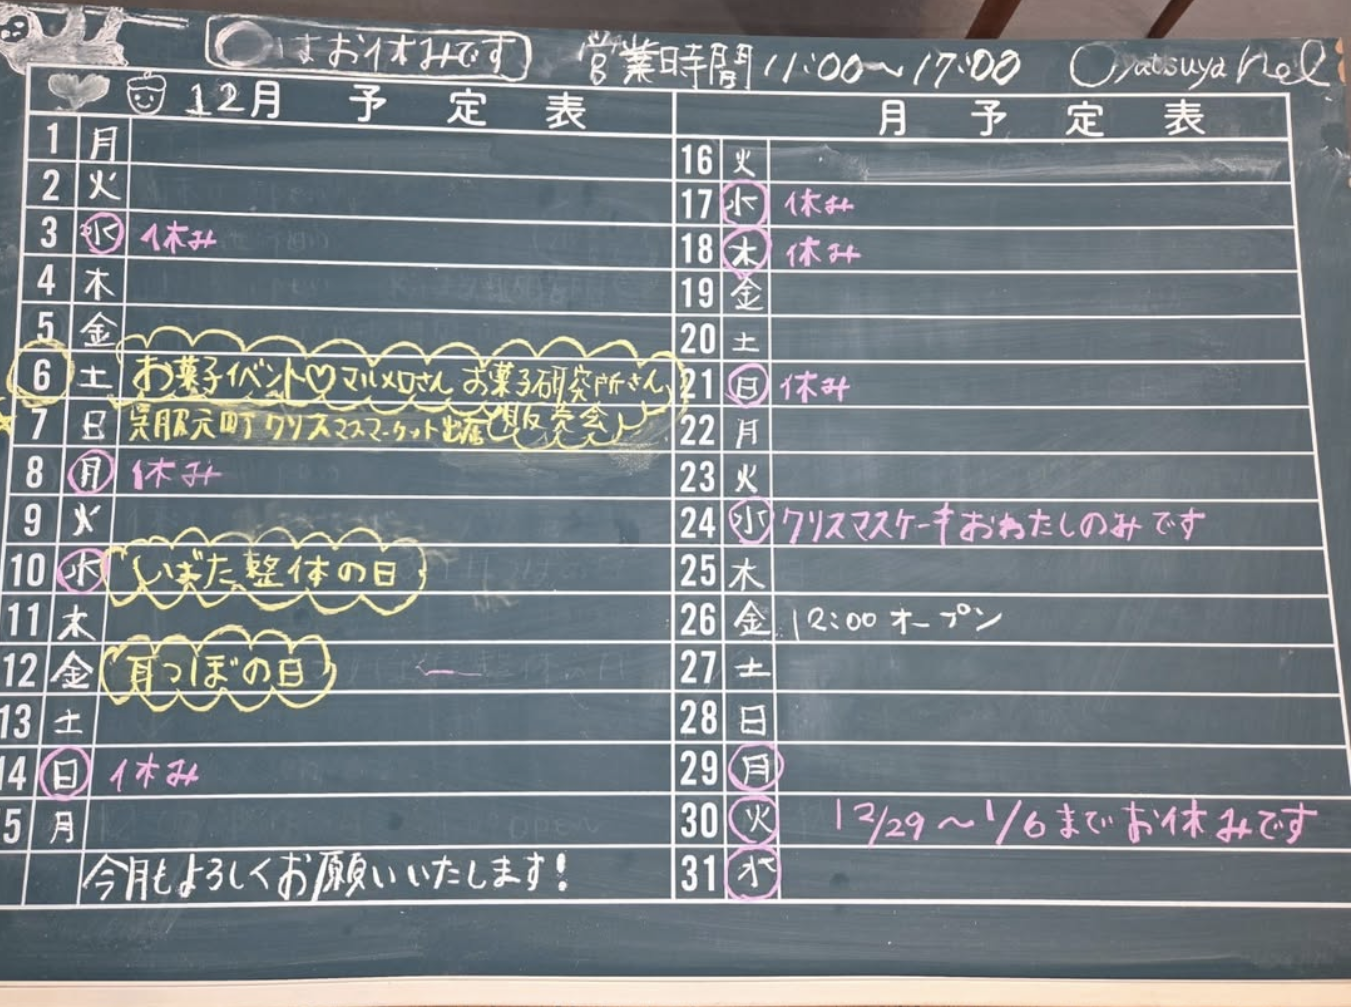 ○はお休みです 営業時間 11:00〜17:00 Oyatsuya nel
12月 予定表
1 月
2 火
3 水 休み
4 木
5 金
6 土 お菓子イベント♡マルメロさん お菓子研究所さん
販売会
7 日 呉服元町クリスマスマーケット出店
8 月 休み
9 火
10 水 いばた整体の日
11 木
12 金 耳つぼの日
13 土
14 日 休み
5 月
今月もよろしくお願いいたします!
月 予定表
16 火
17 水 休み
18 木 休み
19 金
20 土
21 日 休み
22 月
23 火
24 水 クリスマスケーキおわたしのみです
25 木
26 金 12:00 オープン
27 土
28 日
29 月
30 火 12/29〜1/6までお休みです
31 水